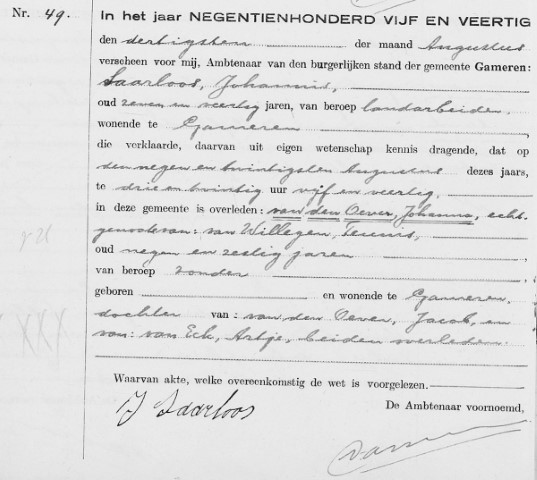 Nr. 49. In het jaar NEGENTIENHONDERD VIJF EN VEERTIG
den dertigsten der maand Augustus
verscheen voor mij, Ambtenaar van den burgerlijken stand der gemeente Gameren:
Saarloos, Johannis,
oud zeven en veertig jaren, van beroep landarbeider,
wonende te Gameren
die verklaarde, daarvan uit eigen wetenschap kennis dragende, dat op
den negen en twintigsten Augustus dezes jaars,
te drie en twintig uur vijf en veertig,
in deze gemeente is overleden: van den Oever, Johanna, echt-
genoote van: van Willegen, Teunis,
oud negen en zestig jaren
van beroep zonder
geboren en wonende te Gameren,
dochter van: van den Oever, Jacob, en
van: van Eck, Artje, beiden overleden.
Waarvan akte, welke overeenkomstig de wet is voorgelezen.
J Saarloos
De Ambtenaar voornoemd,
XXX